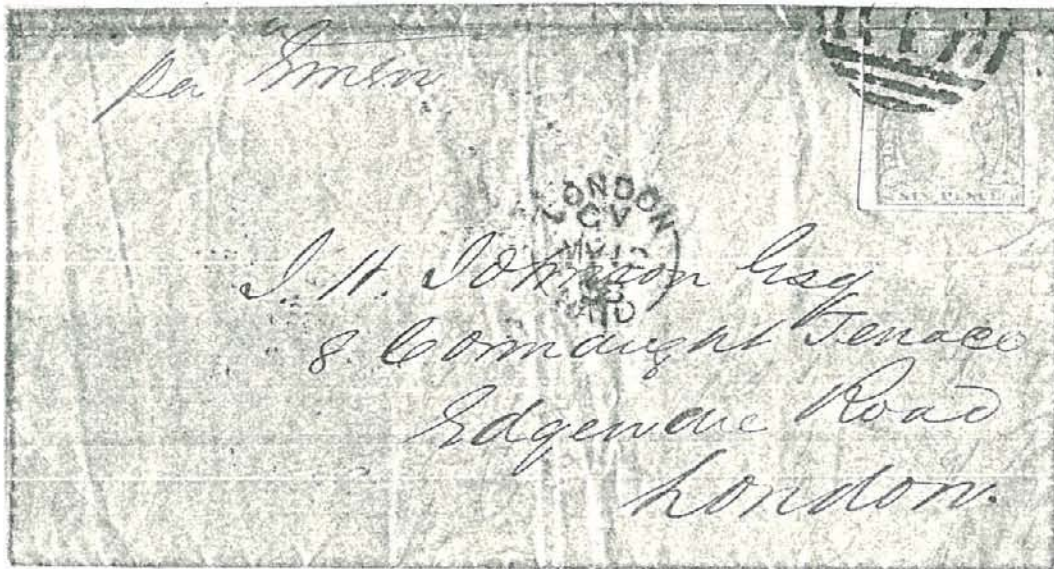 per "Emeu
SIX PENCE
LONDON
CV
MY 12
PAID
J. H. Johnson Esq
8. Connaught Terrace
Edgeware Road
London.